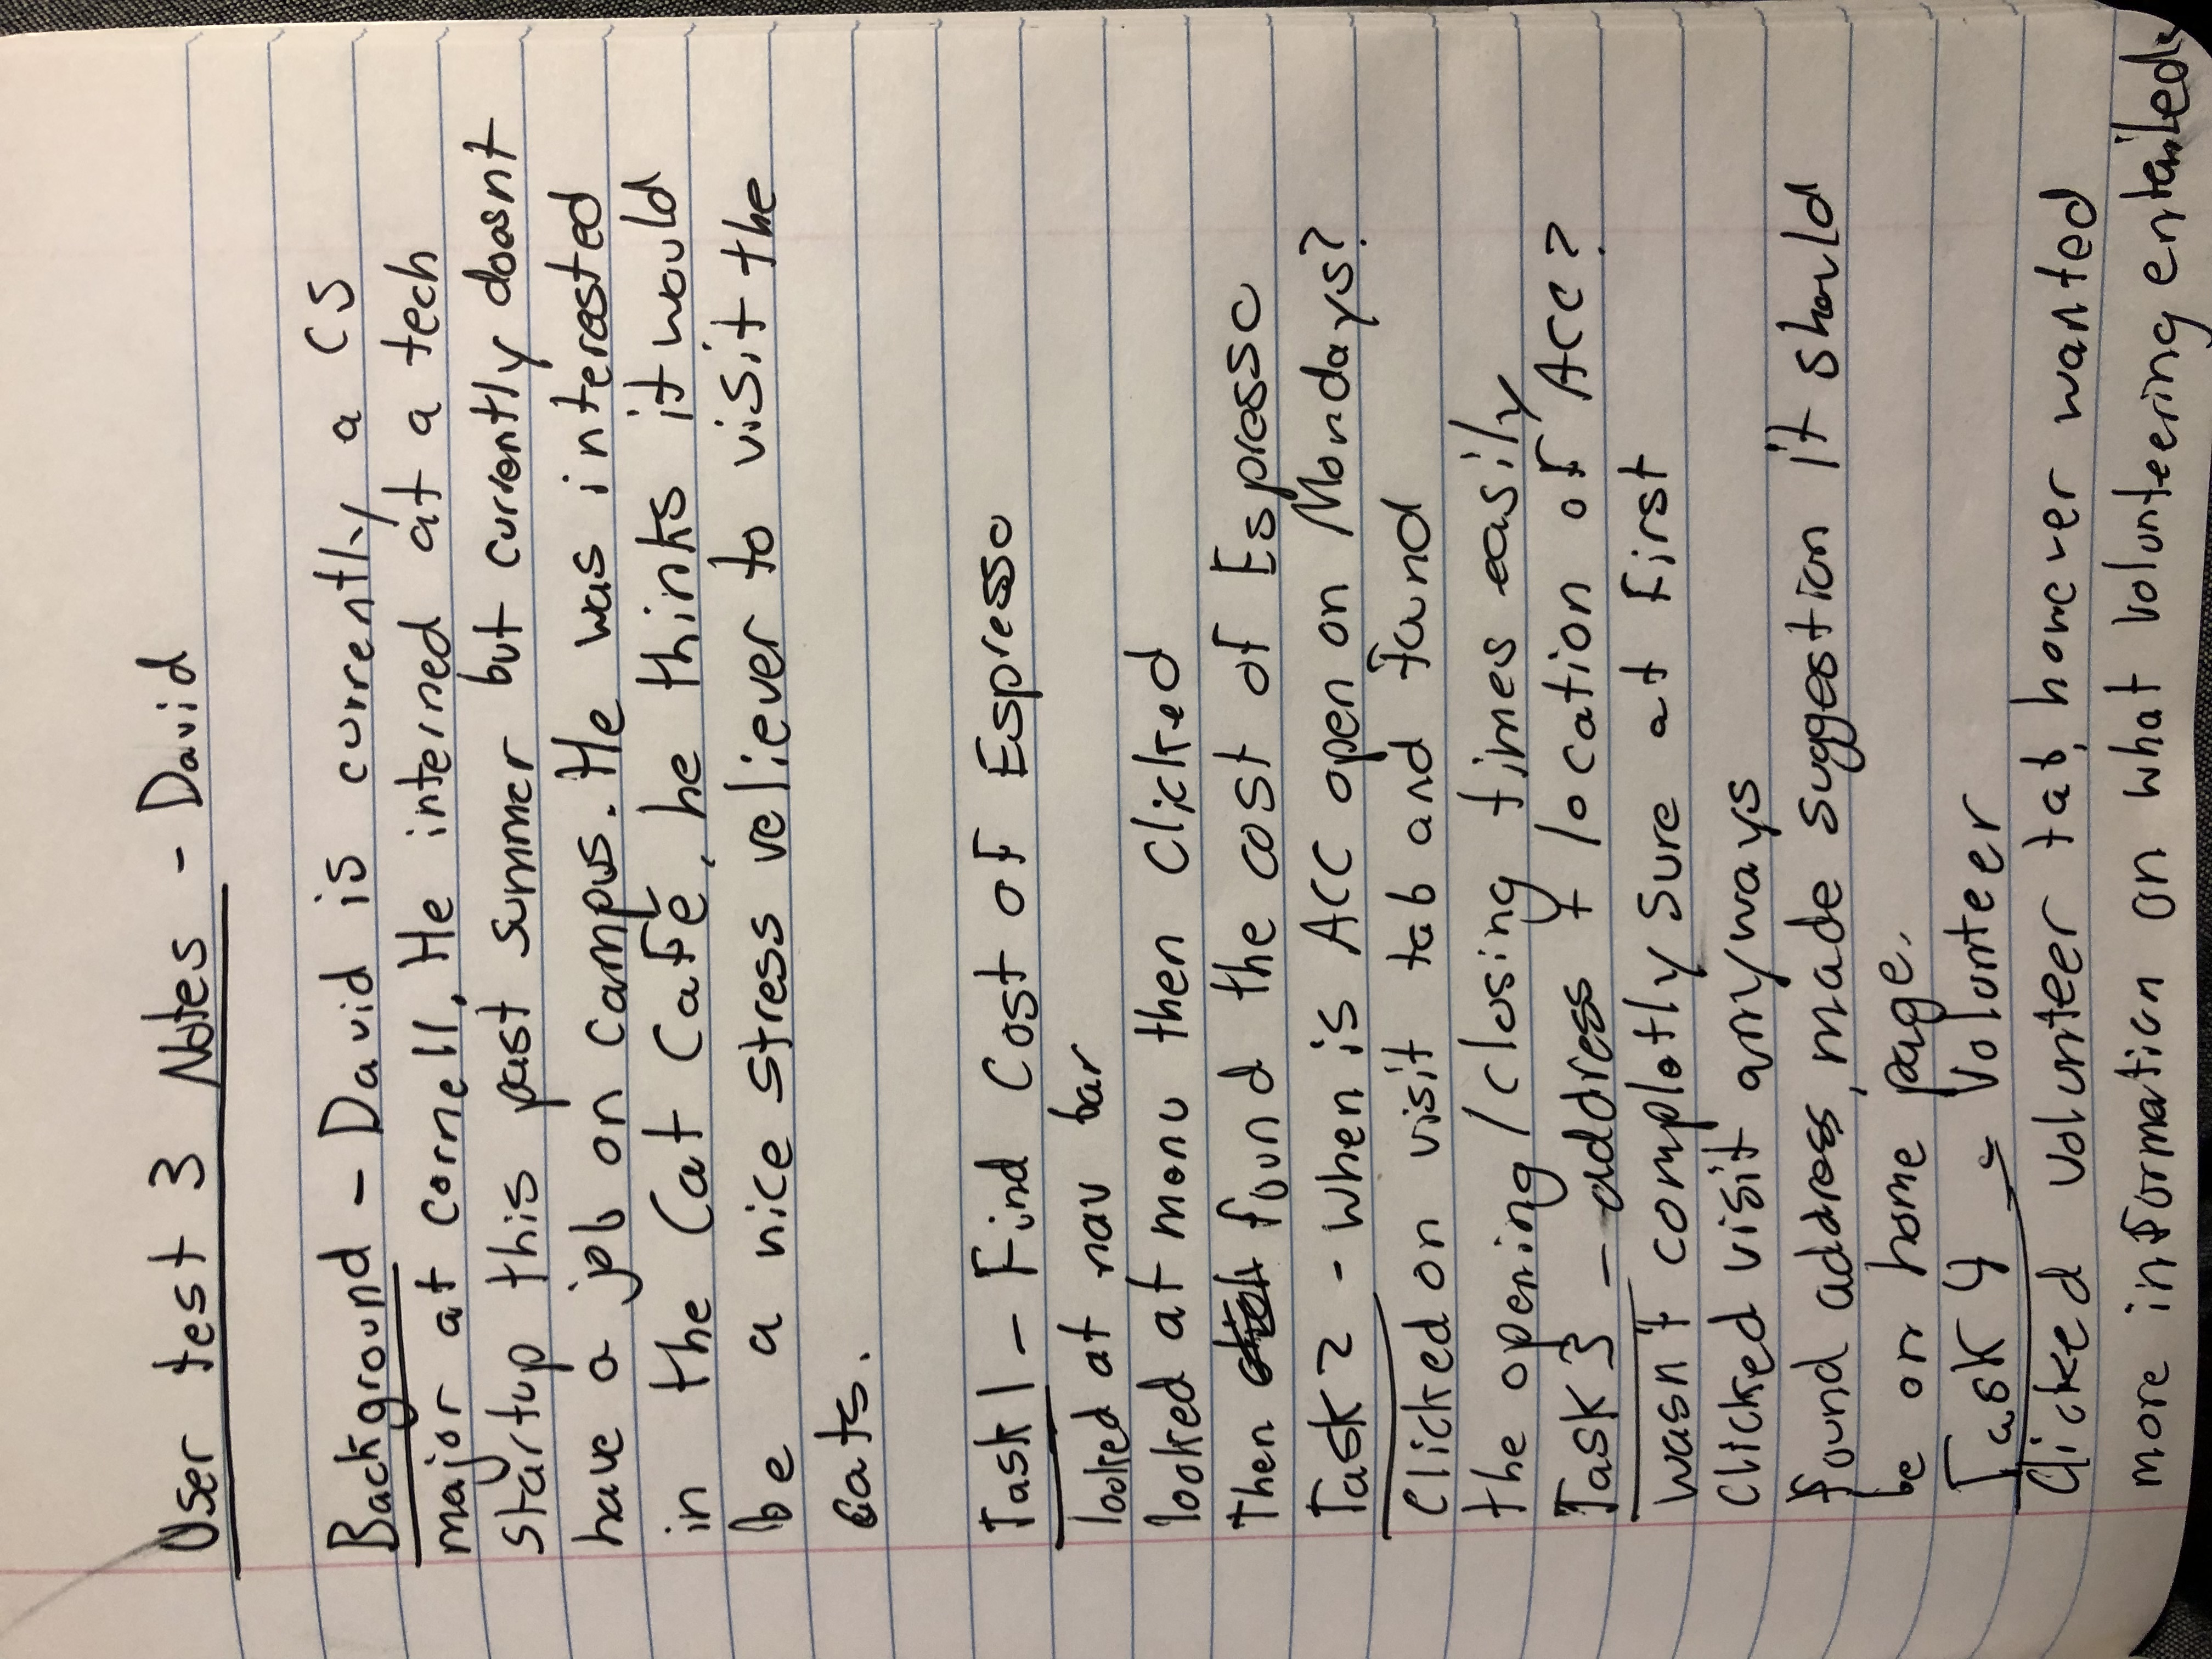 User test 3 Notes - David
Background - David is currently a CS
major at Cornell. He interned at a tech
startup this past summer but currently doesnt
have a job on campus. He was interested
in the Cat Café, he thinks it would
be a nice stress reliever to visit the
cats.
Task 1 - Find Cost of Espresso
looked at nav bar
looked at menu then clicked
Then found the cost of Espresso
Task 2 - When is ACC open on Mondays?
Clicked on visit tab and found
the opening/closing times easily
Task 3 - address + location of ACC?
wasn't completly sure at first
Clicked visit anyways
found address, made suggestion it should
be on home page.
Task 4 - Volunteer
Clicked volunteer tab, however wanted
more information on what volunteering entailed.